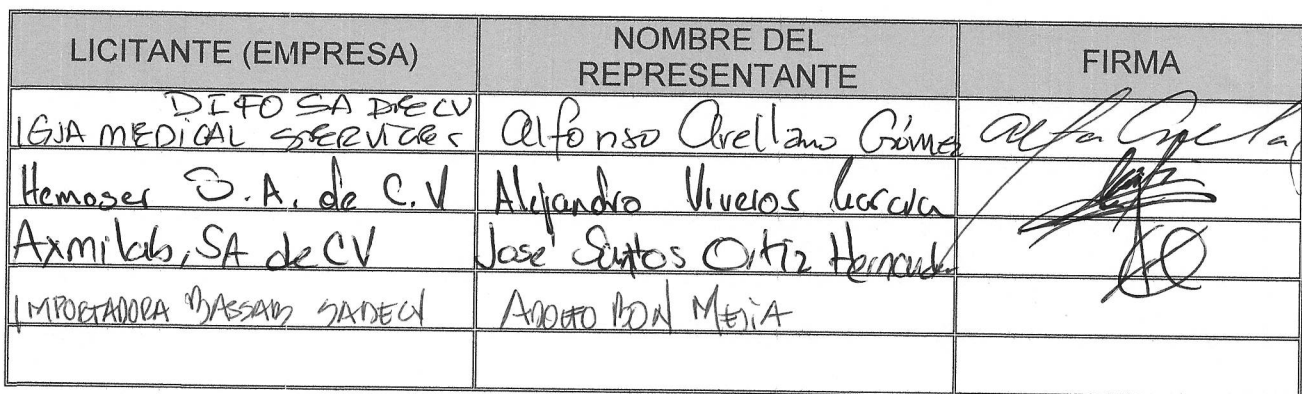 LICITANTE (EMPRESA) NOMBRE DEL REPRESENTANTE FIRMA
DIFO SA DE CV
IGSA MEDICAL SERVICES Alfonso Arellano Gómez
Hemoser S.A. de C.V Alejandro Viveros García
Axmilab, SA de CV José Santos Ortiz Hernandez
IMPORTADORA BASSAB SADECV ADOLFO BON MEJIA